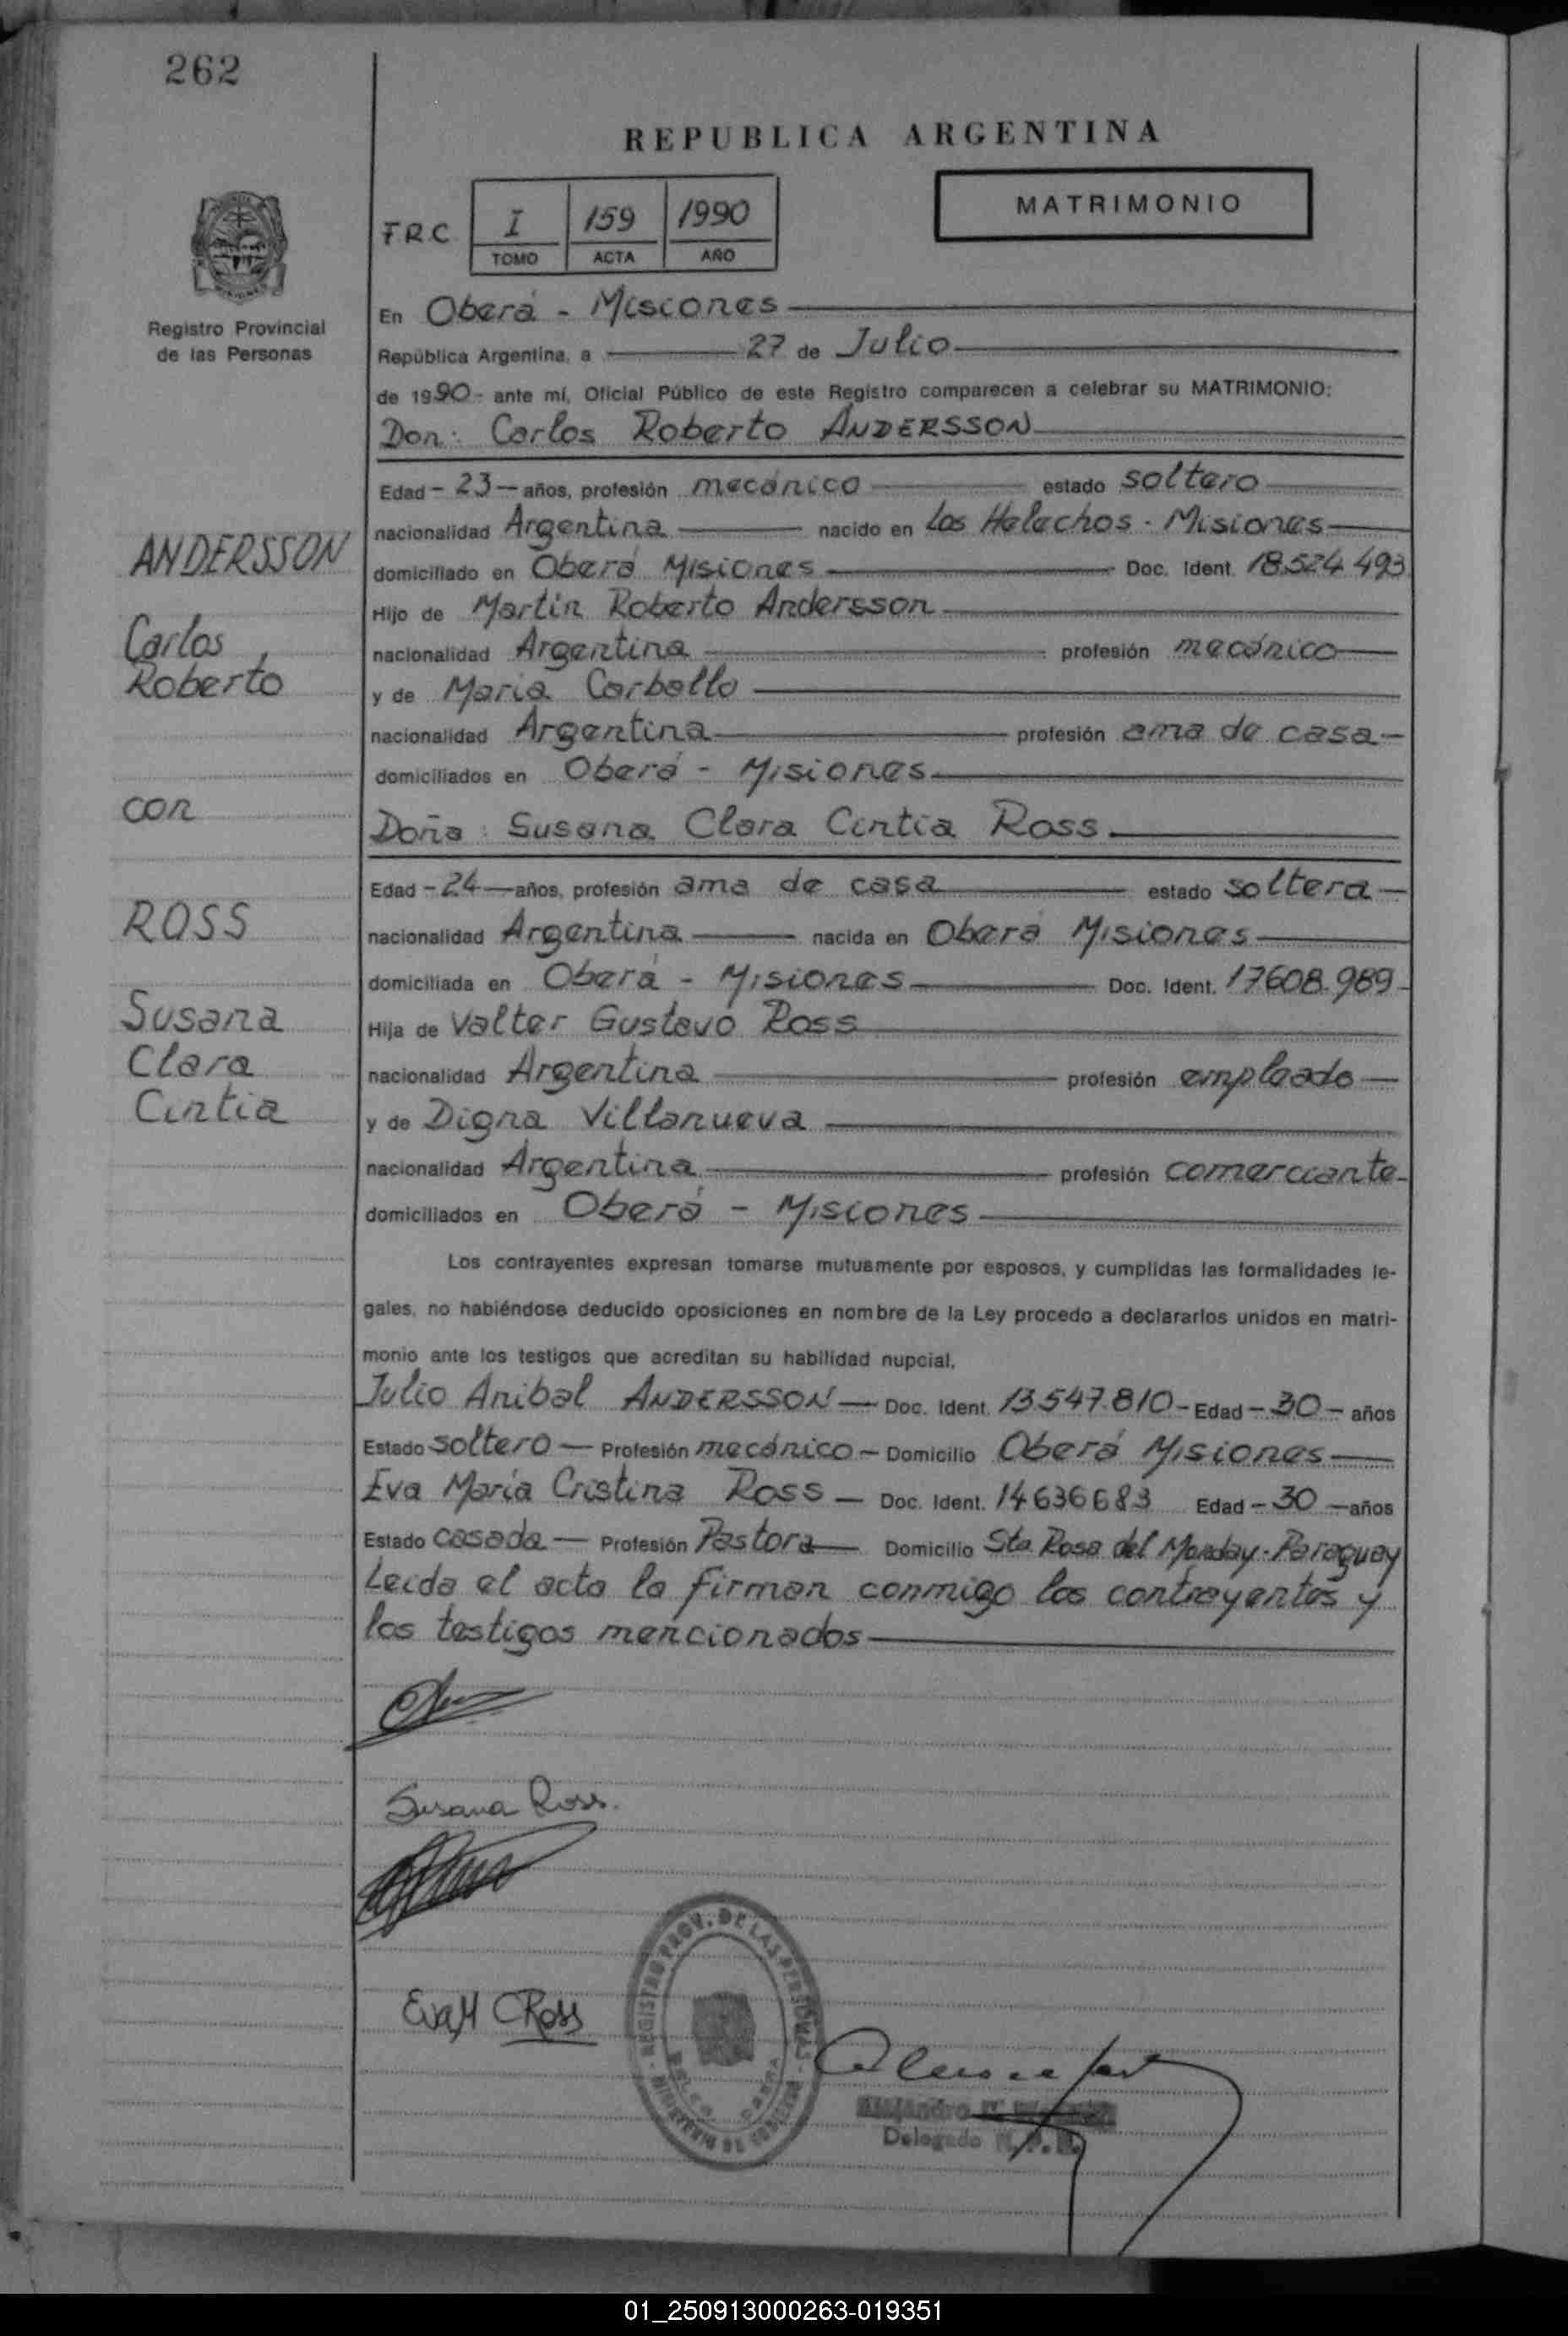 262
REPUBLICA ARGENTINA
MATRIMONIO
F.R.C I 159 1990
TOMO ACTA AÑO
Registro Provincial
de las Personas
En Oberá - Misiones
República Argentina, a 27 de Julio
de 1990- ante mí, Oficial Público de este Registro comparecen a celebrar su MATRIMONIO:
Don: Carlos Roberto ANDERSSON
Edad - 23 - años, profesión mecánico estado soltero
nacionalidad Argentina nacido en Los Helechos - Misiones
ANDERSSON
domiciliado en Oberá Misiones Doc. Ident. 18.524.493
Hijo de Martin Roberto Andersson
Carlos
nacionalidad Argentina profesión mecánico
Roberto
y de Maria Carballo
nacionalidad Argentina profesión ama de casa
domiciliados en Oberá - Misiones
con
Doña: Susana Clara Cintia Ross
Edad - 24 - años, profesión ama de casa estado soltera
ROSS
nacionalidad Argentina nacida en Oberá Misiones
domiciliada en Oberá - Misiones Doc. Ident. 17608.989
Susana
Hija de Valter Gustavo Ross
Clara
nacionalidad Argentina profesión empleado
Cintia
y de Digna Villanueva
nacionalidad Argentina profesión comerciante
domiciliados en Oberá - Misiones
Los contrayentes expresan tomarse mutuamente por esposos, y cumplidas las formalidades le-
gales, no habiéndose deducido oposiciones en nombre de la Ley procedo a declararlos unidos en matri-
monio ante los testigos que acreditan su habilidad nupcial.
Julio Anibal ANDERSSON - Doc. Ident. 13.547.810 - Edad - 30 - años
Estado soltero - Profesión mecánico - Domicilio Oberá Misiones
Eva María Cristina Ross - Doc. Ident. 14636683 Edad - 30 - años
Estado casada - Profesión Pastora - Domicilio Sta. Rosa del Monday - Paraguay
Leida el acta la firman conmigo los contrayentes y
los testigos mencionados
Susana Ross.
Eva M C Ross
REGISTRO PROV. DE LAS PERSONAS
MINISTERIO DE GOBIERNO
Alejandro
Delegado
01_250913000263-019351